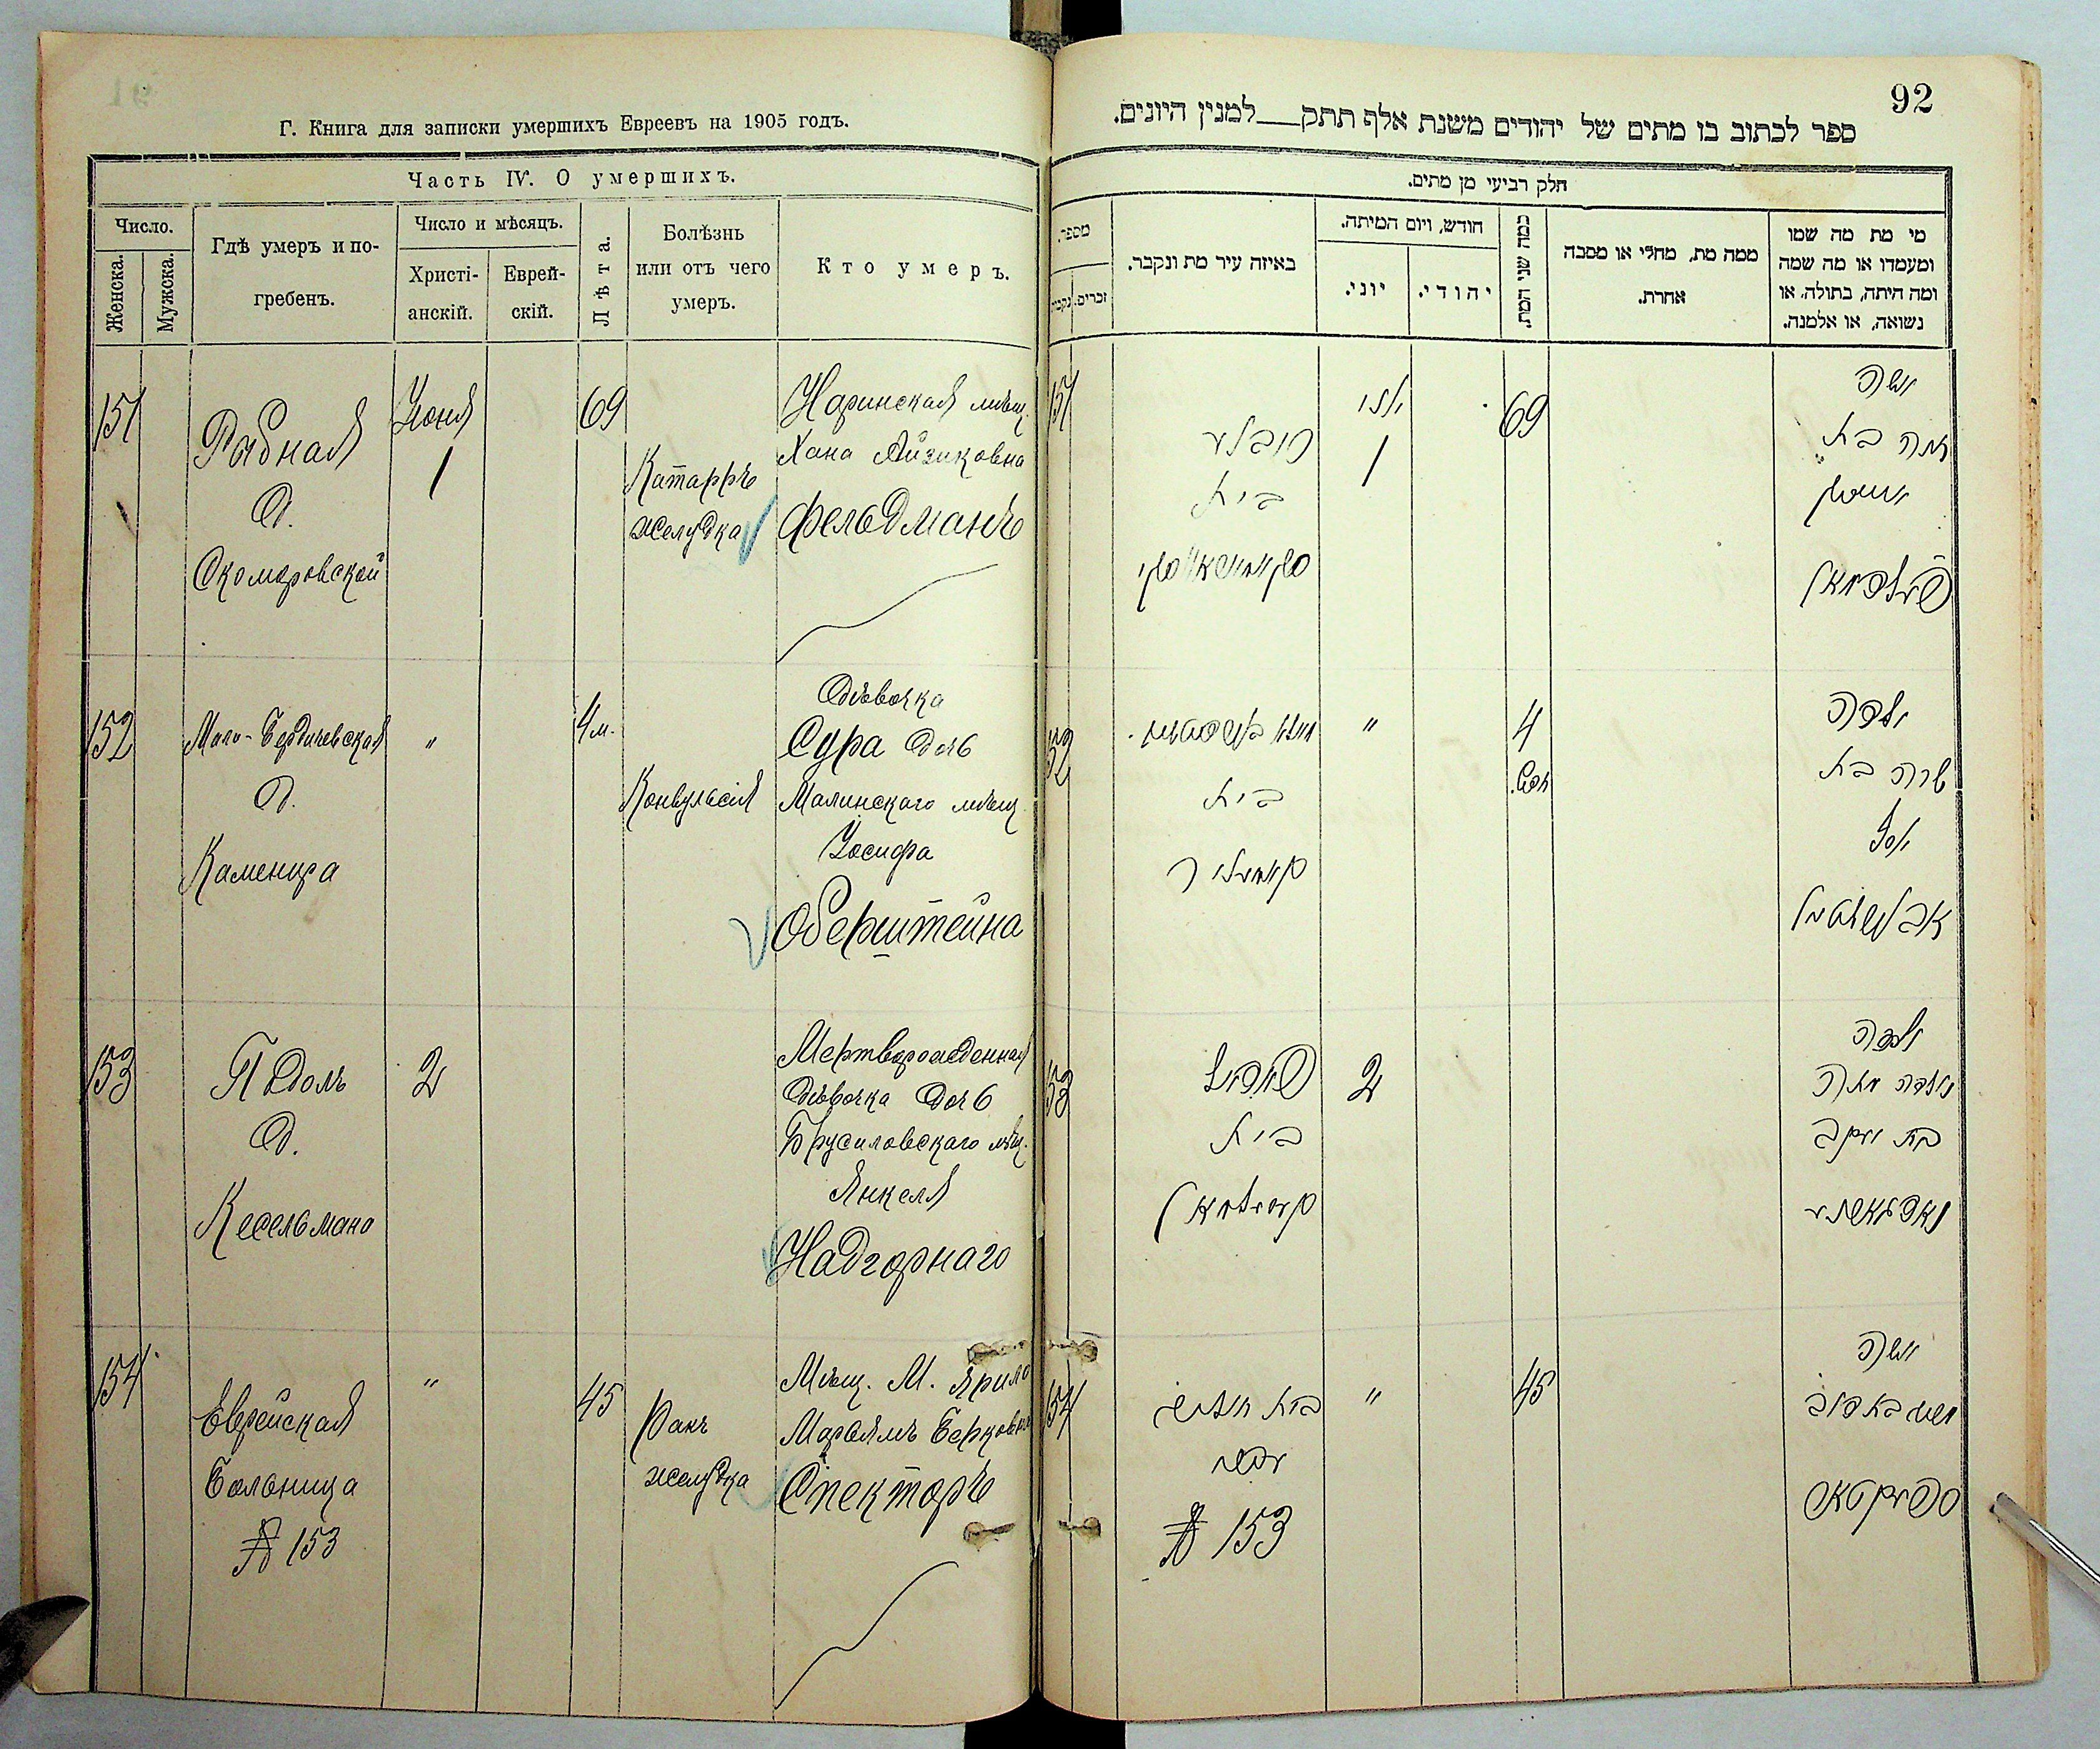 Г. Книга для записки умершихъ Евреевъ на 1905 годъ.
Часть IV. О умершихъ.
Число.
Женска.
Мужска.
Гдѣ умеръ и по-
гребенъ.
Число и мѣсяцъ.
Христі-
анскій.
Еврей-
скій.
Лѣта.
Болѣзнь
или отъ чего
умеръ.
Кто умеръ.
151
Рыбная
д.
Скоморовской
Іюня
1
69
Катарръ
желудка
Наринская мѣщ.
Хана Айзиковна
Фельдманъ
152
Мало-Бердичевская
д.
Каменира
"
4 м.
Конвульсія
Дѣвочка
Сура дочь
Малинскаго мѣщ.
Іосифа
Оберштейна
153
Подолъ
д.
Кесельмана
2
Мертворожденная
Дѣвочка дочь
Брусиловскаго мѣщ.
Янкеля
Надгорнаго
154
Еврейская
Больница
№ 153
"
45
Ракъ
желудка
Мѣщ. М.
Марьямъ Берковна
Спекторъ
92
ספר לכתוב בו מתים של יהודים משנת אלף תתק___למנין היונים.
חלק רביעי מן מתים.
מי מת מה שמו
ומעמדו או מה שמה
ומה היתה, בתולה, או
נשואה, או אלמנה.
ממה מת, מחלי או מסבה
אחרת.
כמה שני המת.
חודש, ויום המיתה.
יהודי.
יוני.
באיזה עיר מת ונקבר.
מספר.
זכרים.
נקבה
151
בית
יוני
1
69
אשה
חנה בת
אייזיק
פעלדמאן
152
בית
"
4
חדש.
ילדה
שרה בת
יוסף
אבערשטיין
153
פאדאל
בית
קעסעלמאן
2
ילדה
נולדה מתה
בת יעקב
154
בית חולים
№ 153
"
45
אשה
ספעקטאר